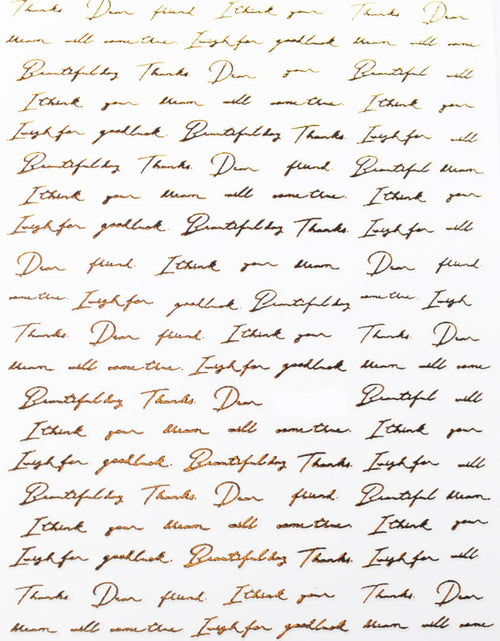 Thanks. Dear friend I think your Thanks. Dear
dream will come true. I wish for goodluck dream will come
Beautiful day Thanks. Dear your Beautiful will
I think your dream will come true. I think your
I wish for goodluck. Beautiful day Thanks. I wish for will
Beautiful day Thanks. Dear friend. Beautiful dream
I think your dream will come true. I think your
I wish for goodluck. Beautiful day Thanks. I wish for will
Dear friend. I think your dream Dear friend.
come true. I wish for goodluck. Beautiful day come true. I wish
Thanks. Dear friend. I think your Thanks. Dear
dream will come true. I wish for goodluck dream will come
Beautiful day Thanks. Dear Beautiful will
I think your dream will come true. I think your
I wish for goodluck. Beautiful day Thanks. I wish for will
Beautiful day Thanks. Dear friend. Beautiful dream
I think your dream will come true. I think your
I wish for goodluck. Beautiful day Thanks. I wish for will
Thanks. Dear friend. I think your Thanks. Dear
dream will come true. I wish for goodluck dream will come